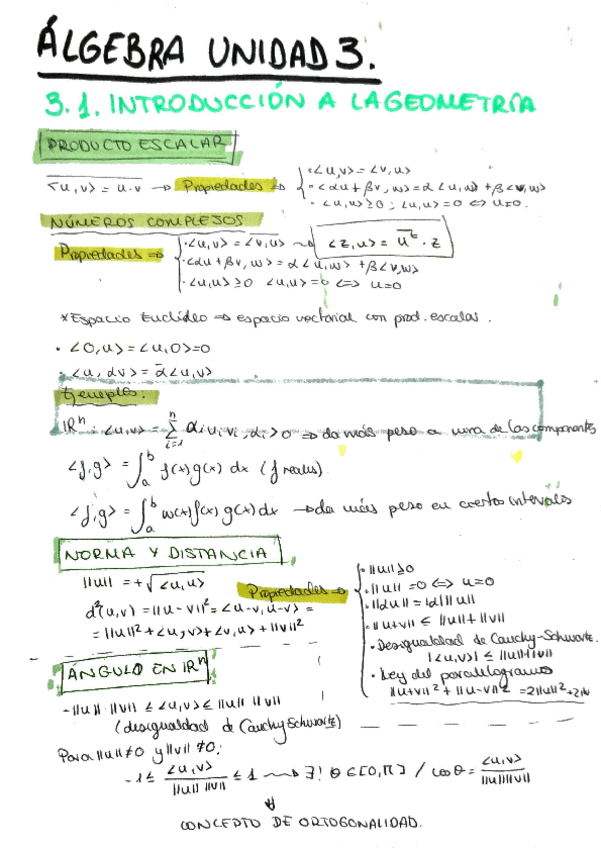 ÁLGEBRA UNIDAD 3.
3.1. INTRODUCCIÓN A LA GEOMETRÍA
PRODUCTO ESCALAR
<u,v> = u·v → Propiedades ⇒
· <u,v> = <v,u>
· <αu + βv, w> = α<u,w> + β<v,w>
· <u,u> ≥ 0 ; <u,u> = 0 ⇔ u=0.
NÚMEROS COMPLEJOS
Propiedades ⇒
· <u,v> = \overline{<v,u>} ⇝ <z,u> = \overline{u}^t · z
· <αu + βv, w> = α<u,w> + β<v,w>
· <u,u> ≥ 0 <u,u> = 0 ⇔ u=0
* Espacio Euclídeo ⇒ espacio vectorial con prod. escalar.
· <0,u> = <u,0> = 0
· <u, αv> = \overline{α}<u,v>
Ejemplos.
ℝⁿ: <u,v> = ∑_{i=1}^{n} αᵢ uᵢ vᵢ, αᵢ > 0 ⇒ da más peso a una de las componentes
<f,g> = ∫_a^b f(x)g(x) dx (f reales)
<f,g> = ∫_a^b w(x)f(x)g(x) dx → da más peso en ciertos intervalos
NORMA Y DISTANCIA
||u|| = +√<u,u>
d²(u,v) = ||u-v||² = <u-v, u-v> =
= ||u||² + <u,v> + <v,u> + ||v||²
Propiedades ⇒
· ||u|| ≥ 0
· ||u|| = 0 ⇔ u=0
· ||αu|| = |α| ||u||
· ||u+v|| ≤ ||u|| + ||v||
· Desigualdad de Cauchy-Schwartz.
|<u,v>| ≤ ||u|| ||v||
· Ley del paralelogramo
||u+v||² + ||u-v||² = 2||u||² + 2||v
ÁNGULO EN ℝⁿ
-||u||·||v|| ≤ <u,v> ≤ ||u|| ||v||
(desigualdad de Cauchy Schwartz)
Para ||u||≠0 y ||v||≠0;
-1 ≤ <u,v> / ||u|| ||v|| ≤ 1 ⇝ ∃! θ∈[0,π] / cos θ = <u,v> / ||u|| ||v||
⇓
CONCEPTO DE ORTOGONALIDAD.